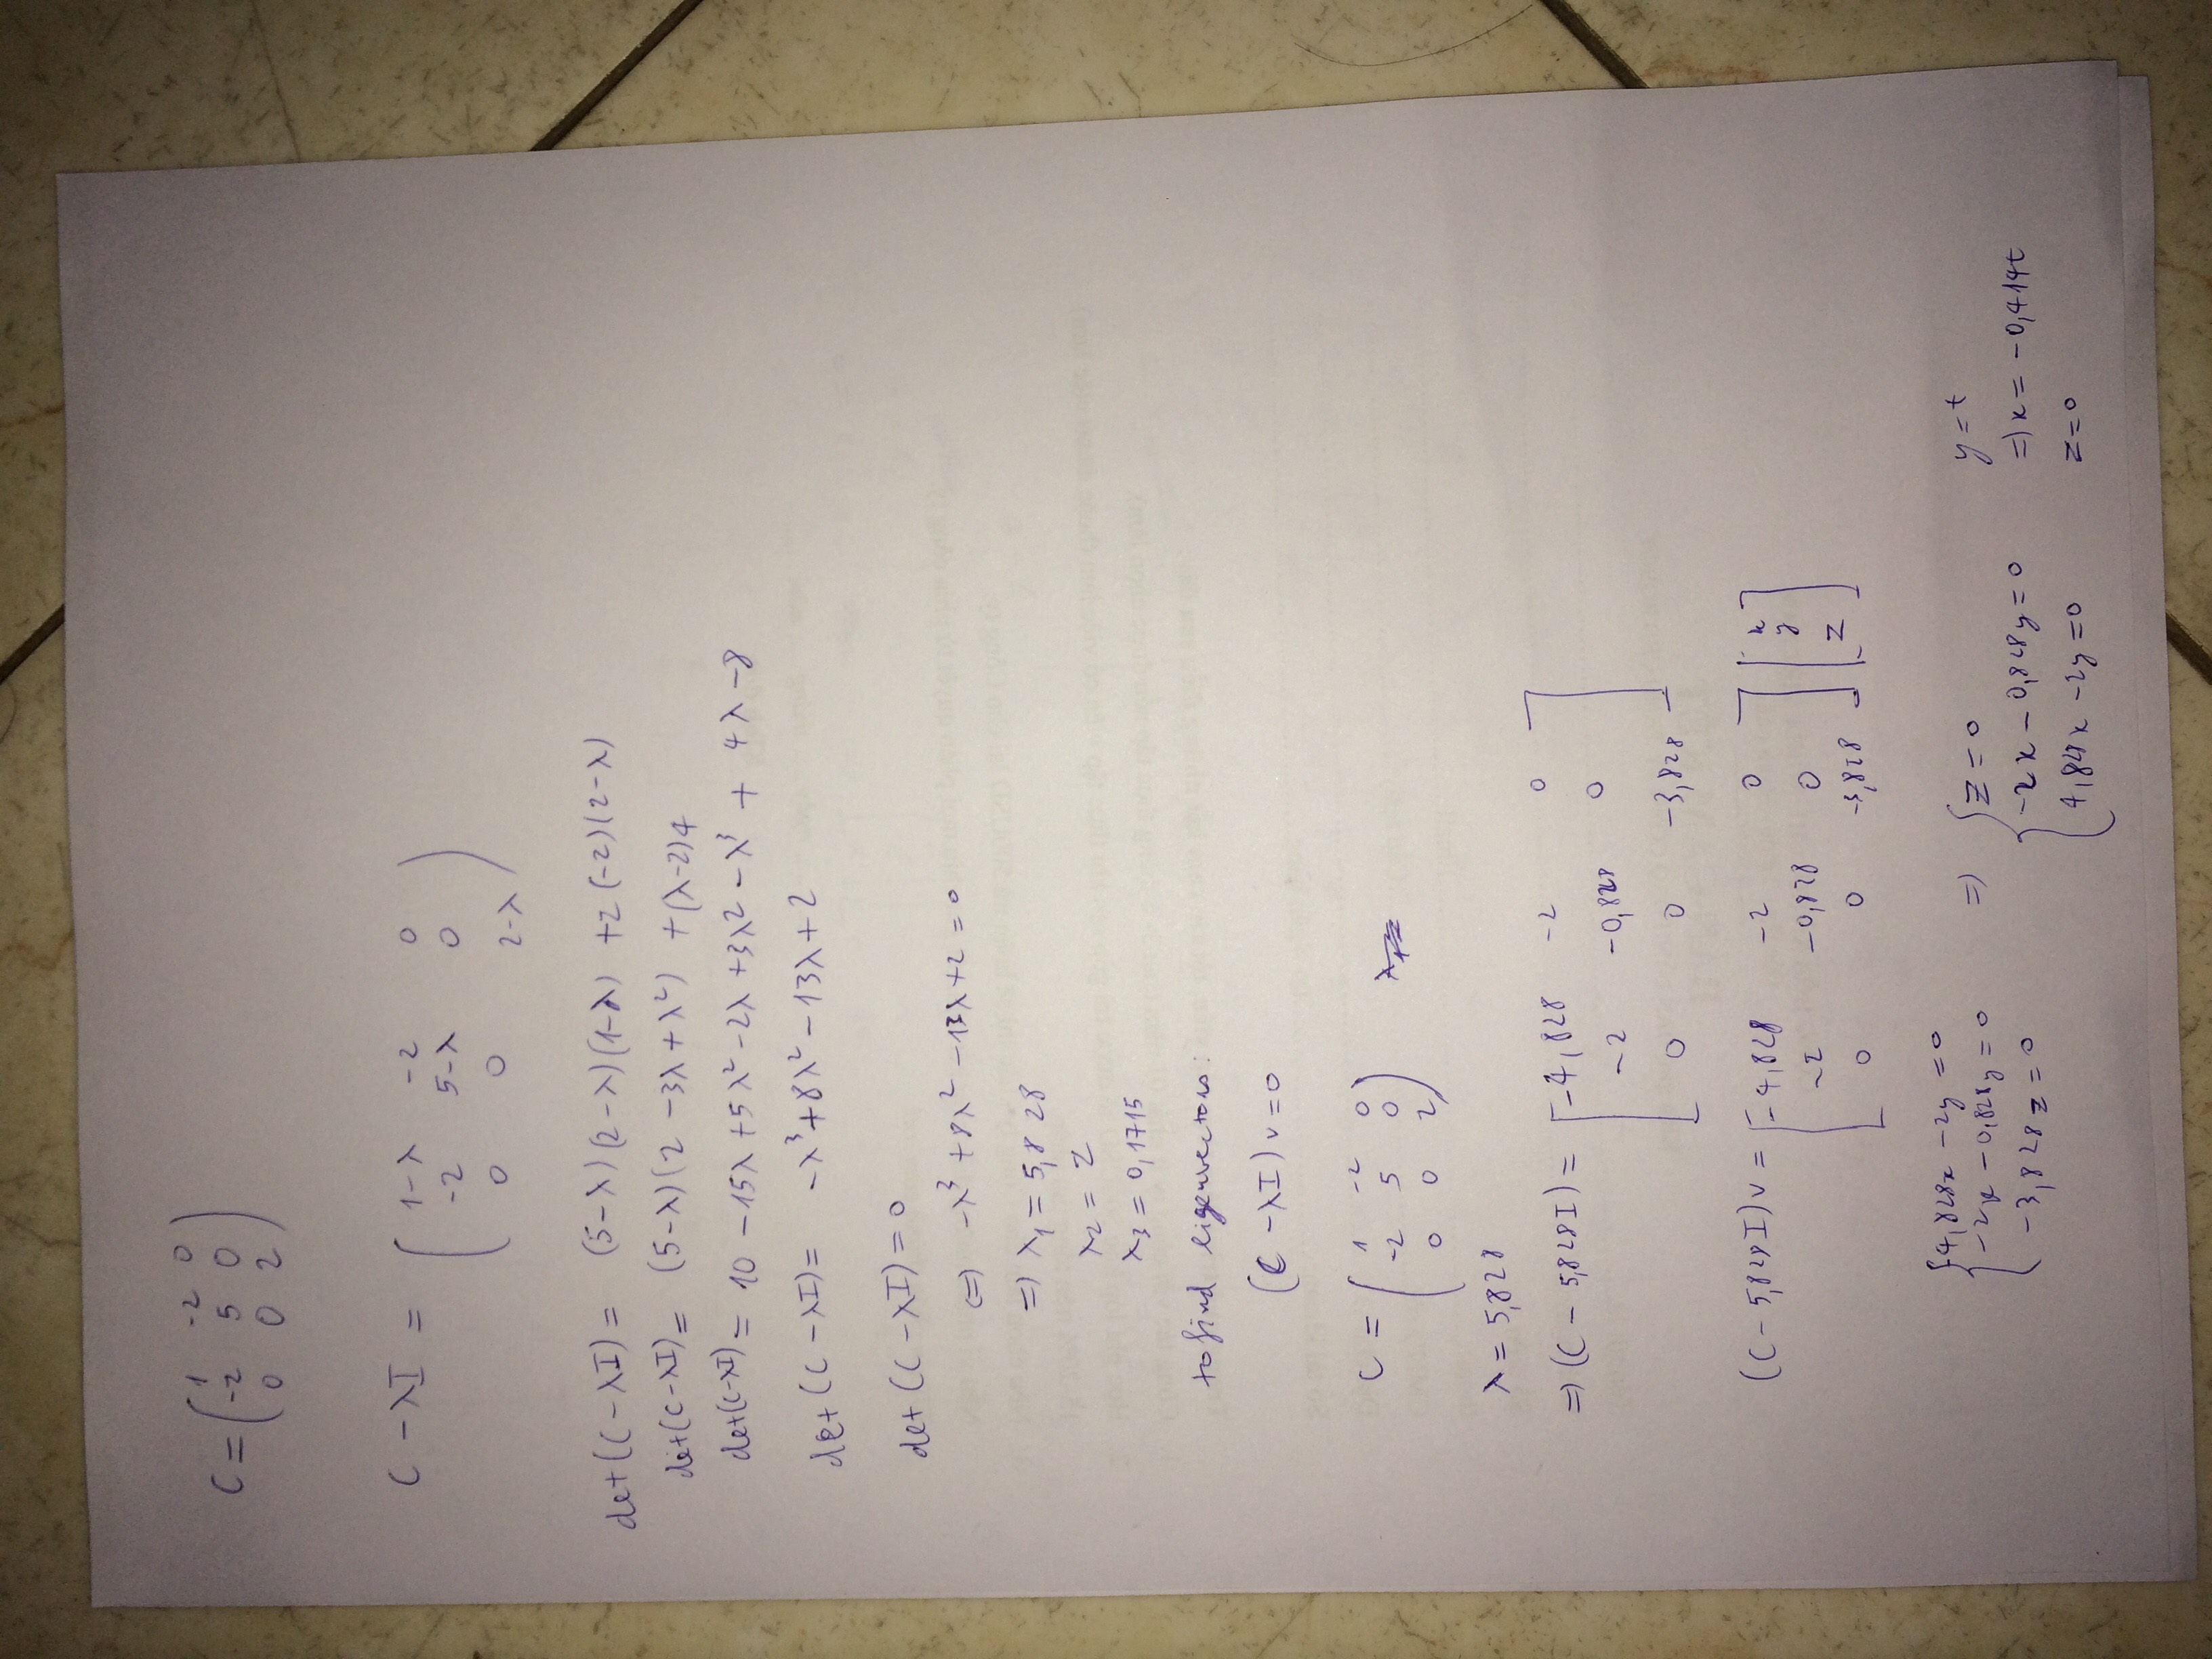 C = ( 1 -2 0
-2 5 0
0 0 2 )
C - λI = ( 1-λ -2 0
-2 5-λ 0
0 0 2-λ )
det(C - λI) = (5-λ)(2-λ)(1-λ) +2(-2)(2-λ)
det(C-λI) = (5-λ)(2 -3λ+λ²) +(λ-2)4
det(C-λI) = 10 -15λ+5λ²-2λ+3λ²-λ³ + 4λ-8
det(C-λI) = -λ³+8λ²-13λ+2
det(C-λI)=0
<=> -λ³+8λ²-13λ+2=0
=> λ₁ = 5,828
λ₂ = 2
λ₃ = 0,1715
to find eigenvectors:
(C -λI)v=0
C = ( 1 -2 0
-2 5 0
0 0 2 )
λ = 5,828
=> (C - 5,828I) = [ -4,828 -2 0
-2 -0,828 0
0 0 -3,828 ]
(C - 5,828I)v = [ -4,828 -2 0 ] [ x
-2 -0,828 0 y
0 0 -3,828 z ]
{ 4,828x -2y =0 => { z=0 y=t
-2x -0,828y=0 -2x - 0,828y=0 =>x= -0,414t
-3,828z=0 4,828x -2y=0 z=0